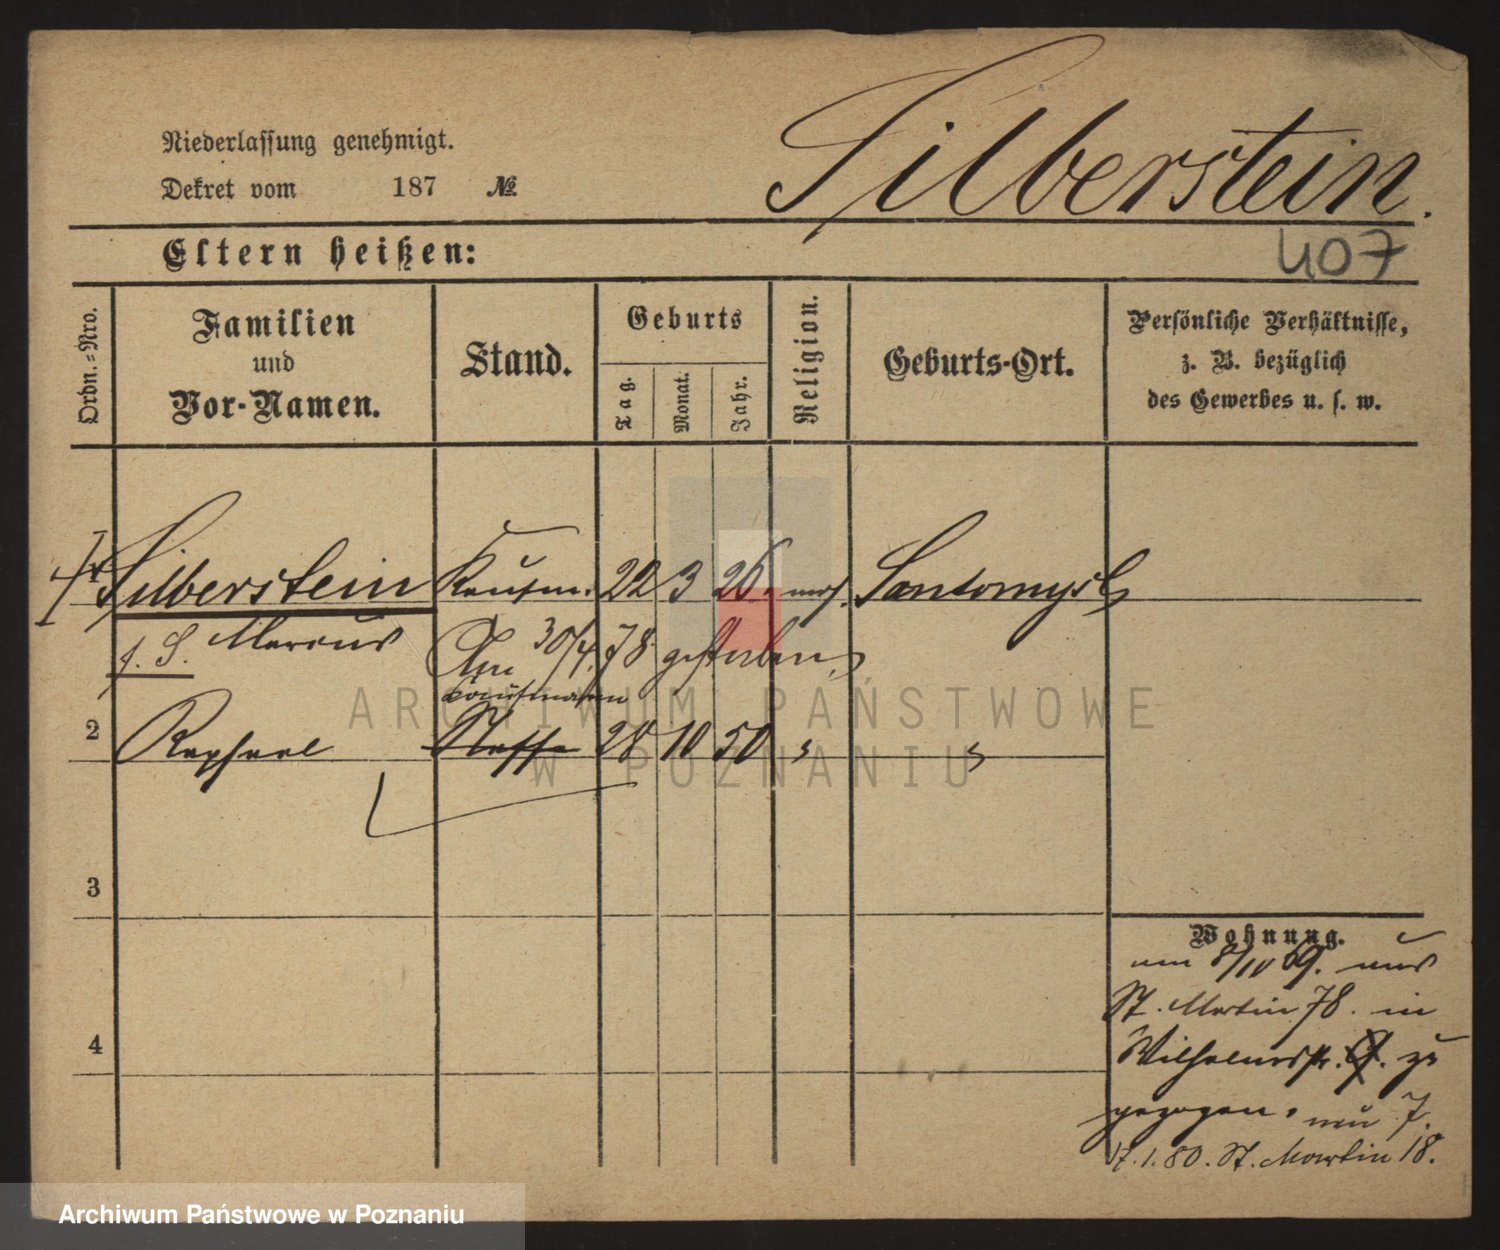 Silberstein.
Niederlassung genehmigt.
Dekret vom 187 №
407
Eltern heißen:
Ordn.-Nro.
Familien und Vor-Namen.
Stand.
Geburts
Tag.
Monat.
Jahr.
Religion.
Geburts-Ort.
Persönliche Verhältnisse,
z. B. bezüglich
des Gewerbes u. s. w.
Silberstein Kaufm. 22 3 26. mos. Santomysl
f. S. Marcus Am 30/4. 78 gestorben
Kaufmann
2 Raphael Neffe 28 10 50
ARCHIWUM PAŃSTWOWE
W POZNANIU
3
4
Wohnung.
am 8/10 69. aus
St. Martin 78. in
Wilhelmsstr. zu
gezogen. neu 7.
17.1.80. St. Martin 18.
Archiwum Państwowe w Poznaniu